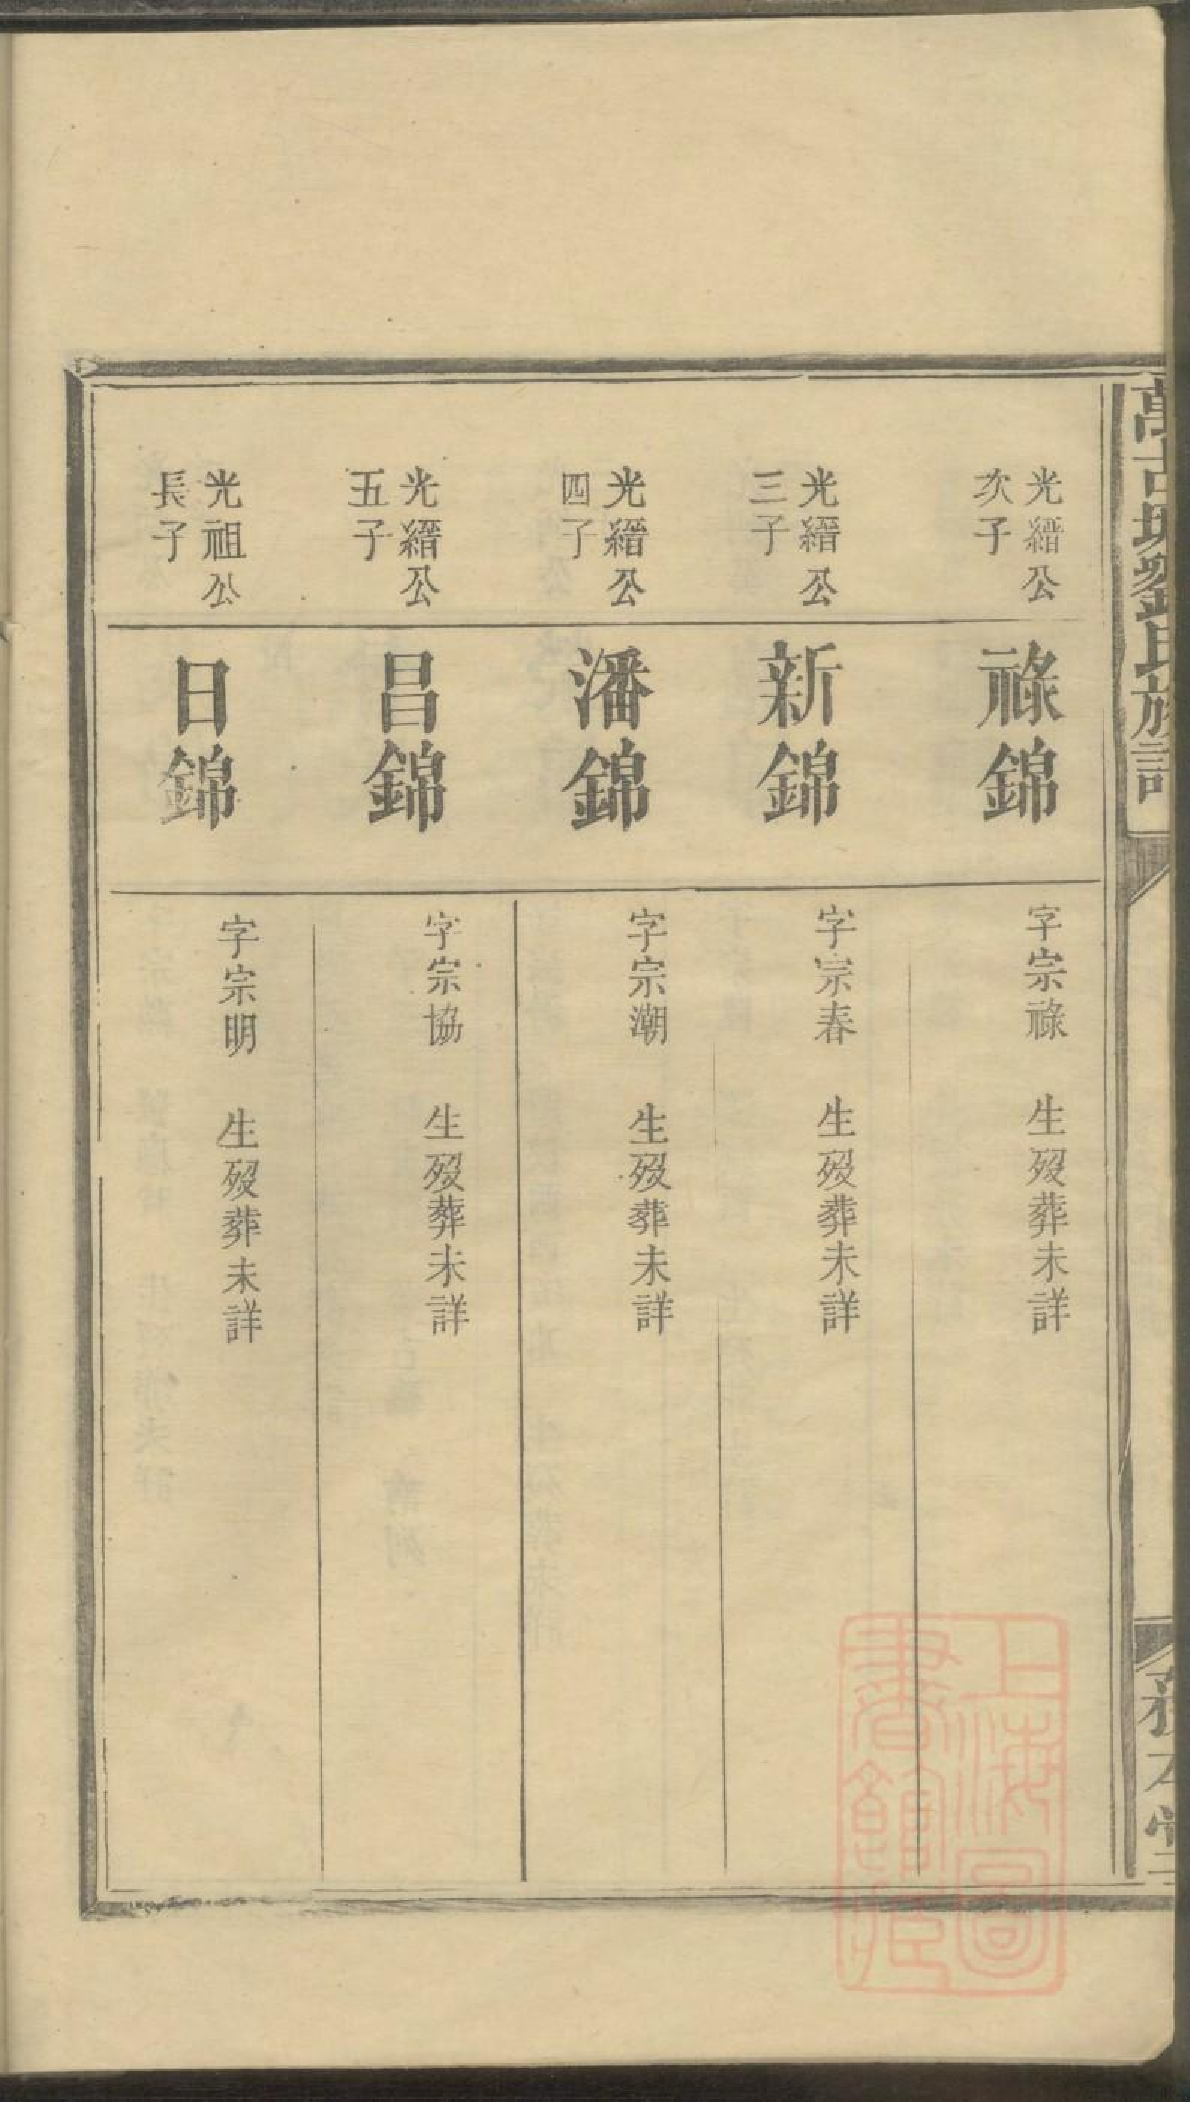 光縉公
次子
祿錦
字宗祿 生歿葬未詳
光縉公
三子
新錦
字宗春 生歿葬未詳
光縉公
四了
潘錦
字宗潮 生歿葬未詳
光縉公
五子
昌錦
字宗協 生歿葬未詳
光祖公
長子
日錦
字宗明 生歿葬未詳
上海圖
書館藏